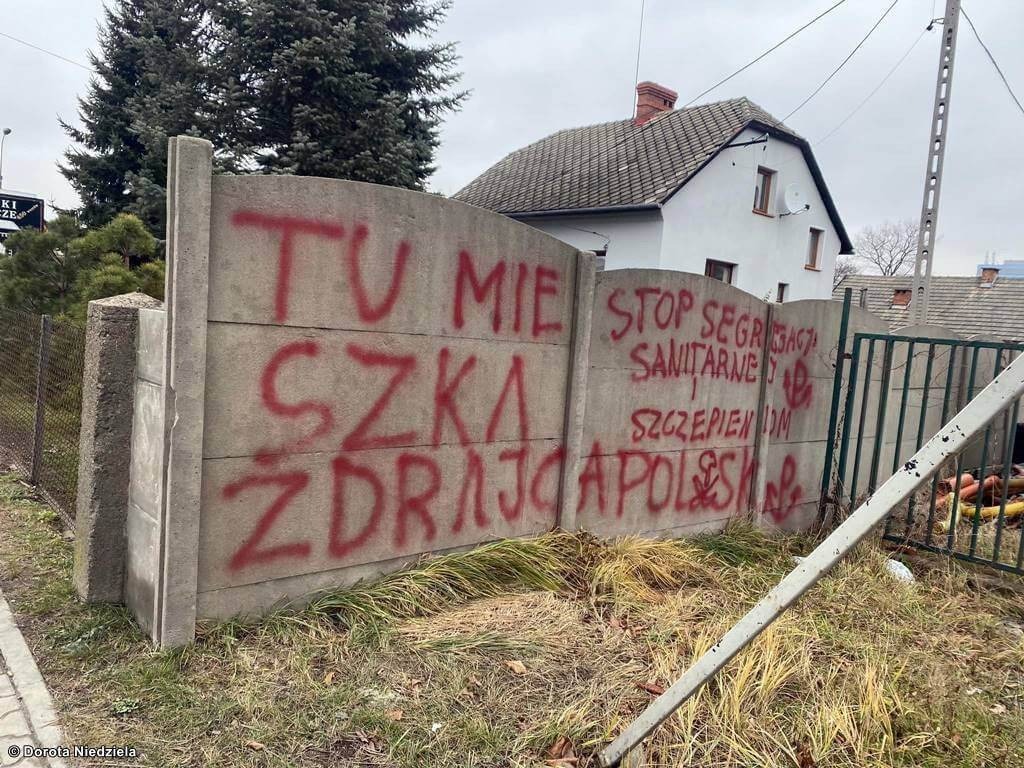 TU MIE
SZKA
ZDRAJCA POLSKI
STOP SEGREGACJI
SANITARNEJ
I
SZCZEPIENIOM
KI
CZE
© Dorota Niedziela